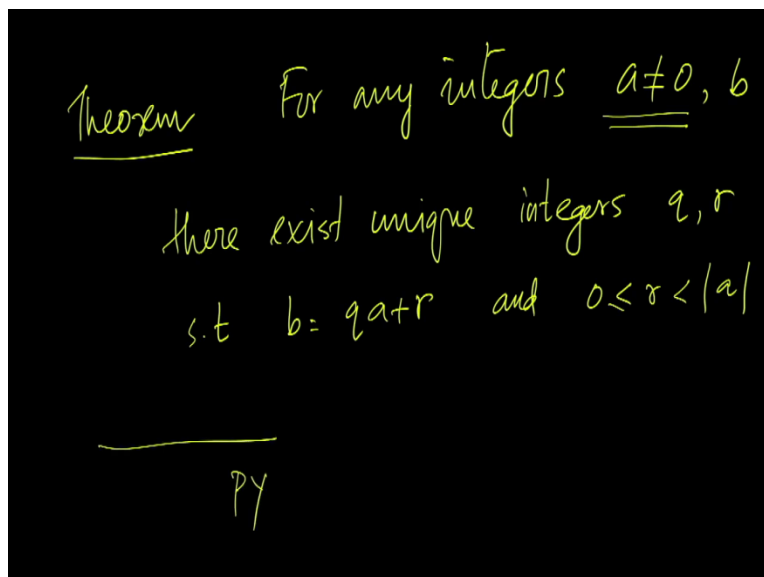 Theorem For any integers a≠0, b
there exist unique integers q, r
s.t b= qa+r and 0≤r<|a|
PY